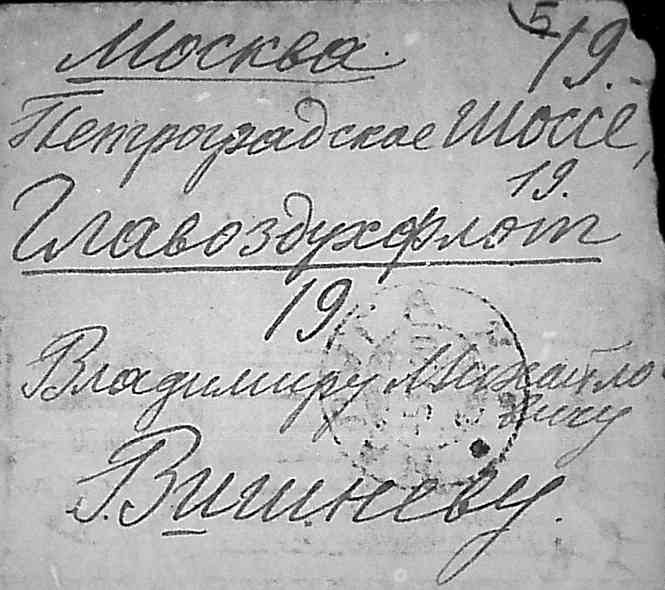 5
Москва. 19.
Петроградское шоссе,
19.
Главоздухфлот
19
Владимиру Михайло-
вичу
Вишневу.